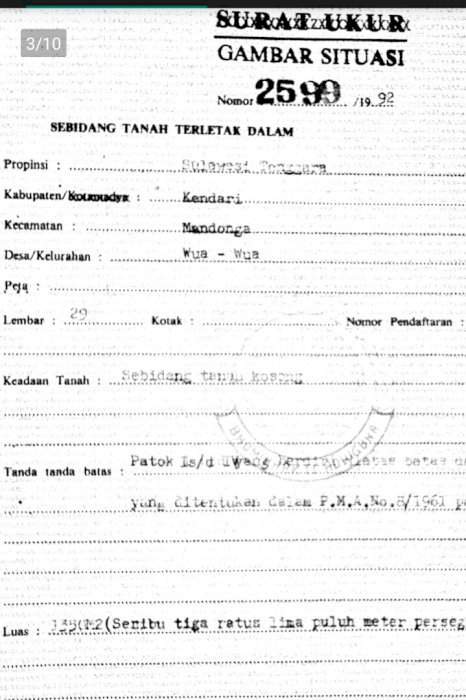 3/10
SURAT UKUR
GAMBAR SITUASI
Nomor 2599 /19 92
SEBIDANG TANAH TERLETAK DALAM
Propinsi : Sulawesi Tenggara
Kabupaten/Kotamadya : Kendari
Kecamatan : Mandonga
Desa/Kelurahan : Wua - Wua
Peta :
Lembar : 29 Kotak : Nomor Pendaftaran :
Keadaan Tanah : Sebidang tanah kosong
Tanda tanda batas : Patok Is/d batas
yang ditentukan dalam P.M.A.No.8/1961
Luas : (Seribu tiga ratus lima puluh meter perseg